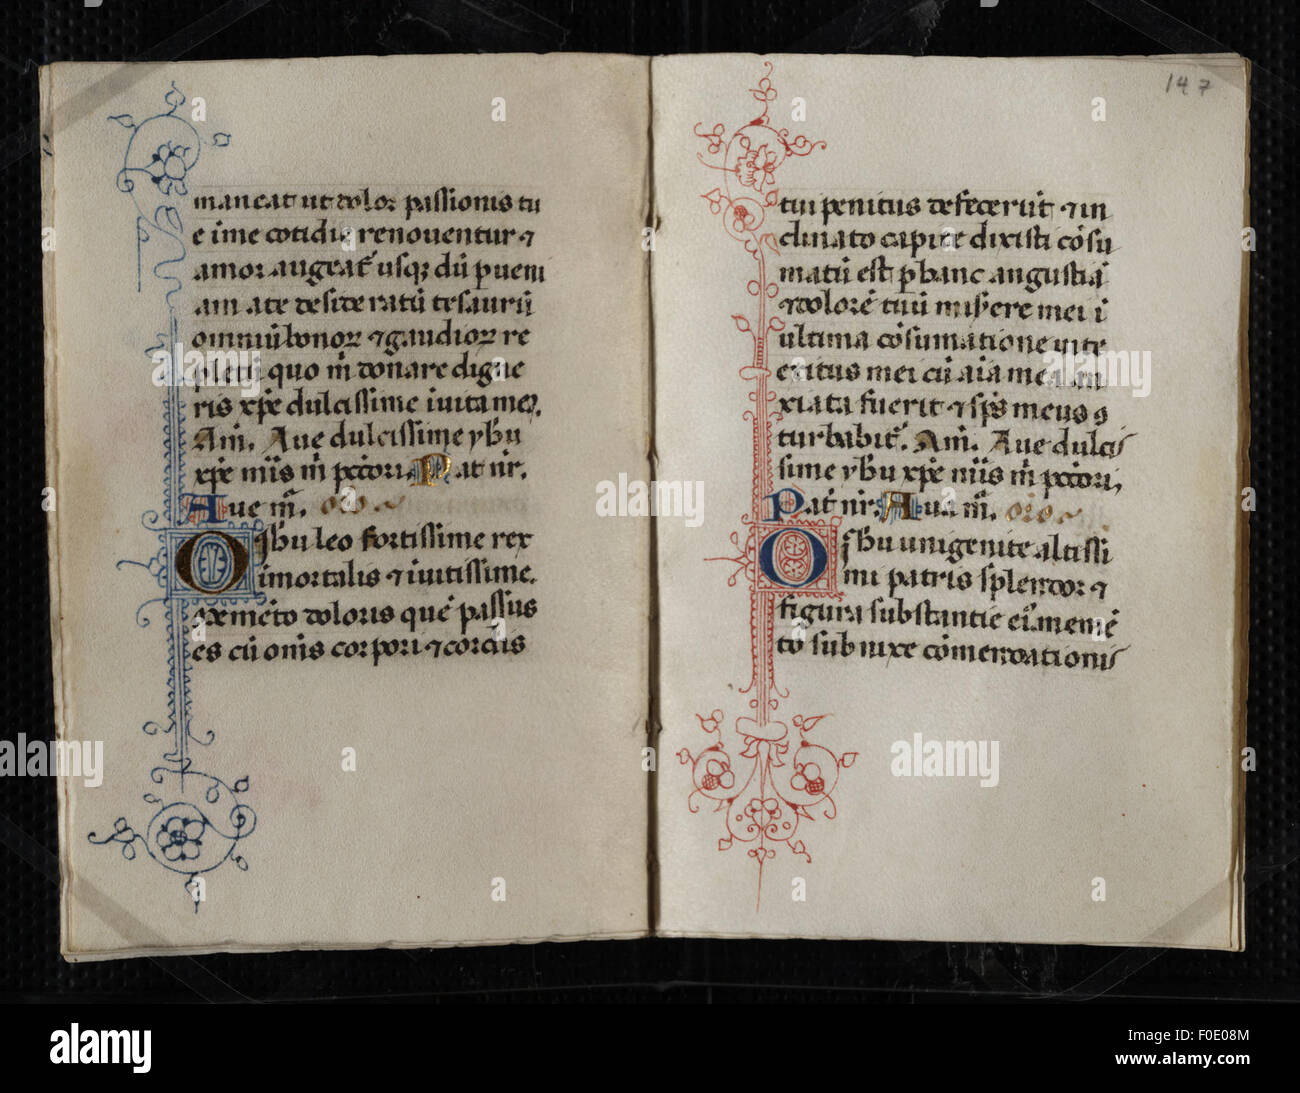 maneat ut dolor passionis tu
e i me cotidie renoventur ⁊
amor augeat᷑ usq; dū p̱veni
am ad te desideratū tesaurū
omniū bonoꝝ ⁊ gaudioꝝ re
pletū quo m̄ donare digne
ris xp̄e dulcissime i vita mea.
Am̄. Ave dulcissime yh̄u
xp̄e mīis m̄ pc̄tori. Pat nr̄.
Ave m̄. oro
O yh̄u leo fortissime rex
imortalis ⁊ ivitissime.
memēto doloris quē passus
es cū onīs corpori ⁊ cordis
147
tui penitus defecerūt ⁊ in
clinato capite dixisti cōsu
matū est p̱ hanc angustiā
⁊ dolorē tuū mis̄ere mei i
ultima cōsumatione vite
exitus mei cū aīa mea an
xiata fuerit ⁊ sp̄s meus ꝯ
turbabit᷑. Am̄. Ave dulcis
sime yh̄u xp̄e mīis m̄ pc̄tori.
Pat nr̄. Ava m̄. oro
O yh̄u unigenite altissi
mi patris splendor ⁊
figura substantie ei᷒. memē
to subnixe cōmendationis
alamy
Image ID: F0E08M
www.alamy.com